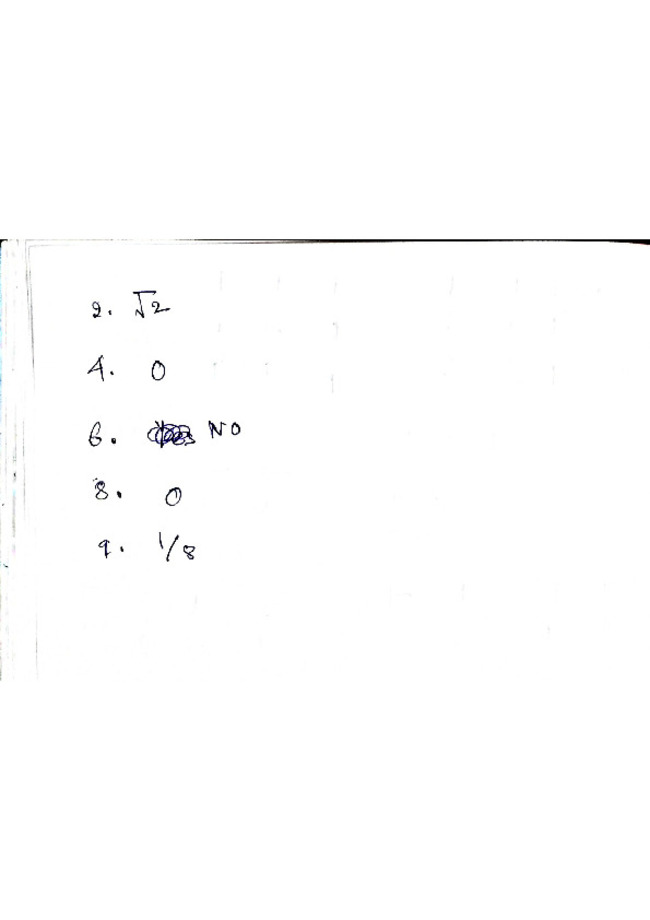 2. √2
4. 0
6. NO
8. 0
9. 1/8